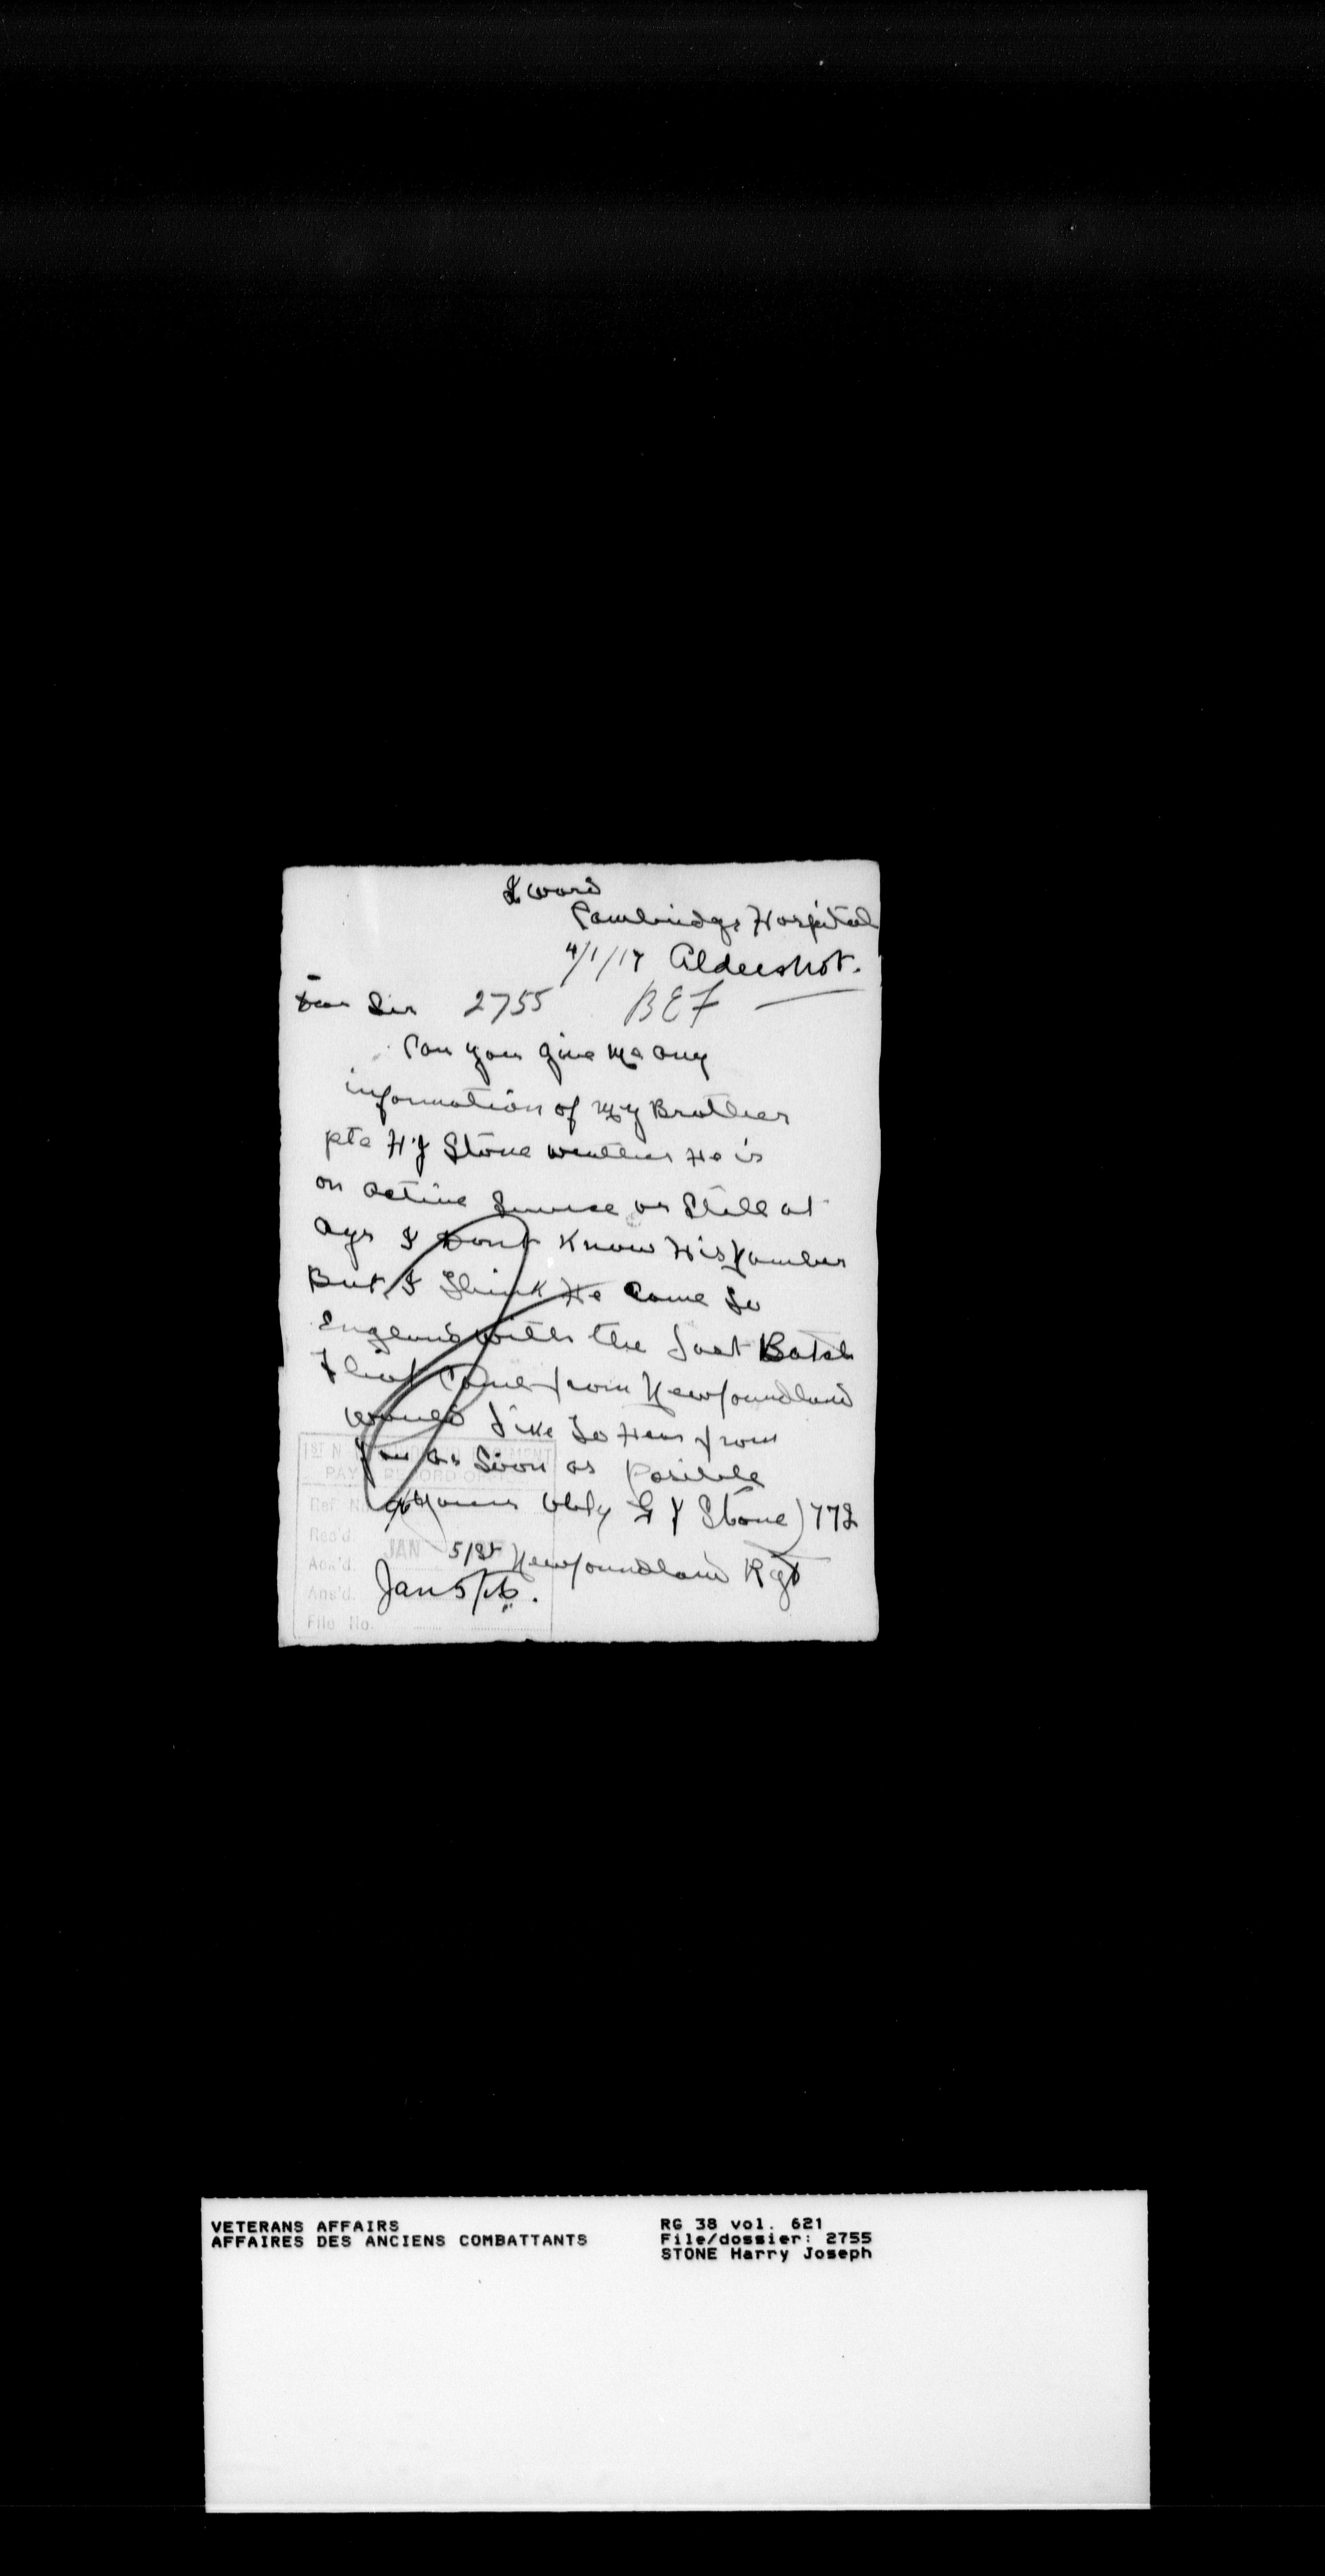 Ward
Cambridge Hospital
4/1/17 Aldershot.
Dear Sir 2755 BEF
Can you give me any
information of my Brother
pte H J Stone weather He is
on active Service or Still at
Ayr I Dont Know His Number
But I Think He Came to
England with the Last Batch
That Came from Newfoundland
Would Like to Hear from
You as Soon as Posible
Yours Obly G Stone) 772
1st Newfoundland Rgt
Jan 5/16.
1ST N REGIMENT
PAY RECORD OFFICE
Ref. No.
Rec'd. JAN
Ack'd.
Ans'd.
File No.
VETERANS AFFAIRS
AFFAIRES DES ANCIENS COMBATTANTS
RG 38 vol. 621
File/dossier: 2755
STONE Harry Joseph